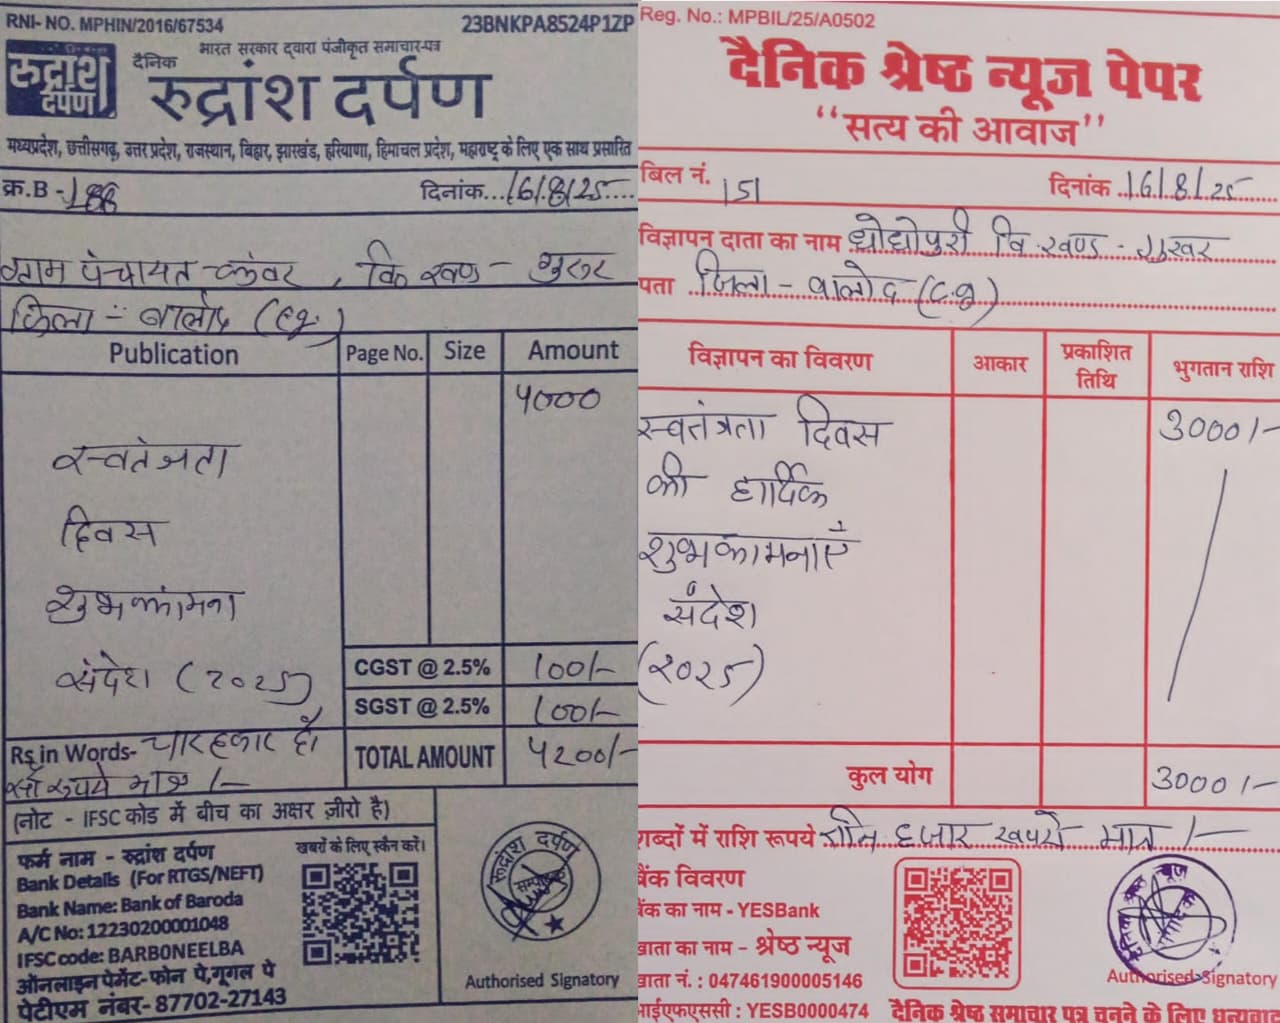 RNI- NO. MPHIN/2016/67534
23BNKPA8524P1ZP
भारत सरकार द्वारा पंजीकृत समाचार-पत्र
रुद्रांश दर्पण
दैनिक
रुद्रांश दर्पण
मध्यप्रदेश, छत्तीसगढ़, उत्तर प्रदेश, राजस्थान, बिहार, झारखंड, हरियाणा, हिमाचल प्रदेश, महाराष्ट्र के लिए एक साथ प्रसारित
क्र.B - दिनांक...16/8/25....
ग्राम पंचायत - कंवर , वि खण्ड - गुरुर
जिला - बालोद (छग)
Publication Page No. Size Amount
4000
स्वतंत्रता
दिवस
शुभकामना
संदेश (2025)
CGST @ 2.5% 100/-
SGST @ 2.5% 100/-
Rs in Words- चार हजार दो
सौ रुपये मात्र /-
TOTAL AMOUNT 4200/-
(नोट - IFSC कोड में बीच का अक्षर ज़ीरो है)
फर्म नाम - रुद्रांश दर्पण
Bank Details (For RTGS/NEFT)
Bank Name: Bank of Baroda
A/C No: 12230200001048
IFSC code: BARB0NEELBA
ऑनलाइन पेमेंट- फोन पे, गूगल पे
पेटीएम नंबर- 87702-27143
खबरों के लिए स्कैन करें।
रुद्रांश दर्पण
Authorised Signatory
Reg. No.: MPBIL/25/A0502
दैनिक श्रेष्ठ न्यूज पेपर
"सत्य की आवाज"
बिल नं. 151 दिनांक 16/8/25
विज्ञापन दाता का नाम धोधोपुरी वि.खण्ड - गुरुर
पता जिला - बालोद (C.g)
विज्ञापन का विवरण आकार प्रकाशित तिथि भुगतान राशि
स्वतंत्रता दिवस 3000/-
की हार्दिक
शुभकामनाएँ
संदेश
(2025)
कुल योग 3000/-
शब्दों में राशि रूपये तीन हजार रुपये मात्र /-
बैंक विवरण
बैंक का नाम - YESBank
खाता का नाम - श्रेष्ठ न्यूज
खाता नं. : 047461900005146
आईएफएससी : YESB0000474
Authorised Signatory
दैनिक श्रेष्ठ समाचार पत्र चुनने के लिए धन्यवाद